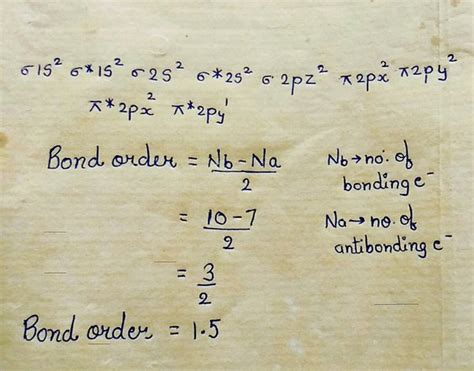 σ1s² σ*1s² σ2s² σ*2s² σ2pz² π2px² π2py²
π*2px² π*2py¹
Bond order = Nb-Na / 2
Nb → no. of bonding e⁻
= 10-7 / 2
Na → no. of antibonding e⁻
= 3 / 2
Bond order = 1.5